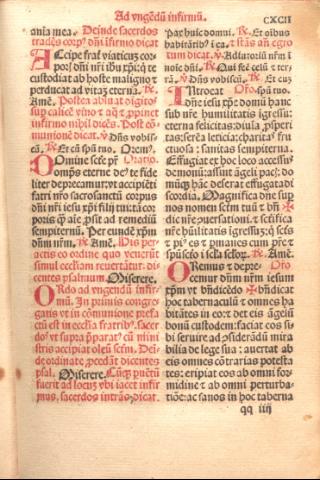 Ad vngēdū infirmū. CXCII
aīa mea. Deinde sacerdos
tradēs corpꝰ dñi īfirmo dicat
ACcipe frař viaticuȝ cor-
poꝛ. dñi nři ihu xp̄i: qui te
custodiat ab hoste maligno ⁊
perducat ad vitaȝ eternā. ℟.
Amē. Postea
infirmo nihil dicēs. Post cō-
munionē dicat. ℣. Dñs vobis-
cū. ℟. Et cū spū tuo. Oremꝰ.
DOmine scte pr̄ Oratio.
omps̄ eterne deꝰ te fide
liter deprecamur: vt accipiēti
fratri nřo sacrosanctū corpus
dñi nři iesu xp̄i filij tui: tā cor
poris q̄ aīe ꝓsit ad remediū
sempiternū. Per eundē xp̄m
dñm nřm. ℟. Amē. Dis per-
actis eo ordine quo venerūt
simul ecclīam reuertātur: di-
centes psalmum. Miserere.
ORdo ad vngendū infir-
mū. In primis congre
gatis vt in cōmunione prefa
ctū est in ecclīa fratribꝰ, sacer
doꝰ vt supra ꝓparatꝰ cū mini
stris accipiat oleū scm̄. Dein-
de ordinate ꝓcedāt dicentes
psal. Miserere. Cūqȝ puētū
fuerit ad locuȝ vbi iacet infir
mus, sacerdos intrās; dicat.
Pax huic domui. ℟. Et oībus
habitātibꝰ ī ea. ⁊ stās an̄ egro
tum dicat. ℣. Adiutoriū nřm ī
noīe dñi. ℟. Qui fec celū ⁊ ter-
rā. ℣. Dñs vobiscū. ℟. Et cuȝ
INtroeat Ořo. spū tuo.
dñe iesu xp̄e domū hanc
sub nře humilitatis igressu:
eterna felicitas: diuia ꝓsperi
tas: serēa leticia: charitas fru
ctuosa: sanitas sempiterna.
Effugiat ex hoc loco accessus
demonū: assint āgeli pacꝭ: do
muȝqȝ hāc deserat
scordia. Magnifica dñe sup
nos nomen sctm tuū ⁊ bn̄ ✠
dic nře ꝯuersationi: ⁊ sctifica
nře hūilitatis igressuȝ: q̄ sctꝰ
⁊ piꝰ es ⁊ pmanes cum pře ⁊
spūscto ī scla seclo. ℟. Amē.
ORemus ⁊ depre- Ořo.
cemur dñm nřm iesum
xp̄m vt bn̄dicēdo ✠ bn̄dicat
hoc tabernaculū ⁊ omnes ha
bitātes in eo: ⁊ det eis āgeluȝ
bonū custodem: faciat eos si-
bi seruire ad ꝯsiderādū mira
bilia de lege sua: auertat ab
eis omnes cōtrarias potesta
tes: eripiat eos ab omni for-
midine ⁊ ab omni perturba-
tiōe: ac sanos in hoc taberna
qq iiij